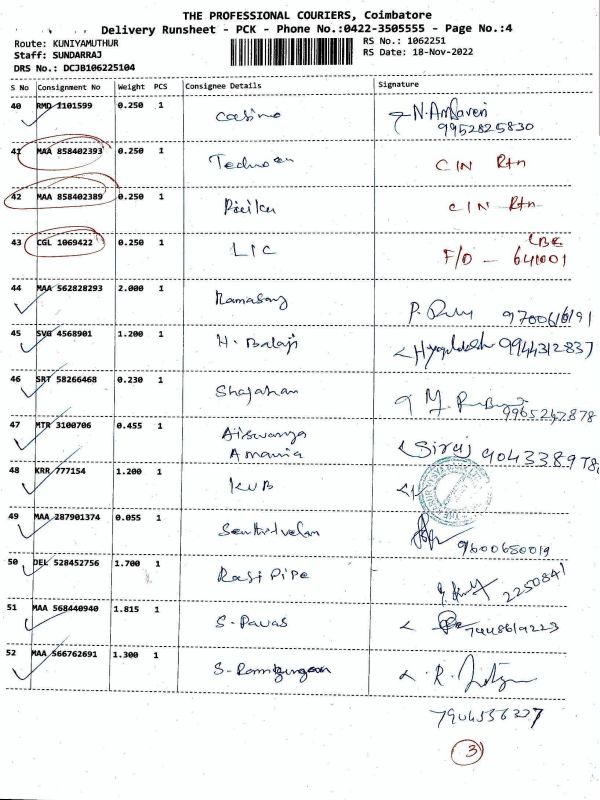 THE PROFESSIONAL COURIERS, Coimbatore
Delivery Runsheet - PCK - Phone No.:0422-3505555 - Page No.:4
Route: KUNIYAMUTHUR
RS No.: 1062251
Staff: SUNDARRAJ
RS Date: 18-Nov-2022
DRS No.: DCJB106225104
S No Consignment No Weight PCS Consignee Details Signature
40 RMD 1101599 0.250 1 Casino
9952825830
41 MAA 858402393 0.250 1 CIN Rtn
42 MAA 858402389 0.250 1 CIN Rtn
43 CGL 1069422 0.250 1 LIC F/O - CBE 641001
44 MAA 562828293 2.000 1 Ramasay
45 SVG 4568901 1.200 1 H. Balaji 9944312837
46 SRT 58266468 0.230 1 Shajahan 9965247878
47 MTR 3100706 0.455 1 Aiswarya Siraj
48 KRR 777154 1.200 1 KVB
49 MAA 287901374 0.055 1 Senthilvelan
9600650019
50 DEL 528452756 1.700 1 Rasi Pipe 2250841
51 MAA 568440940 1.815 1 S. Pavas
52 MAA 566762691 1.300 1
7904536327
3